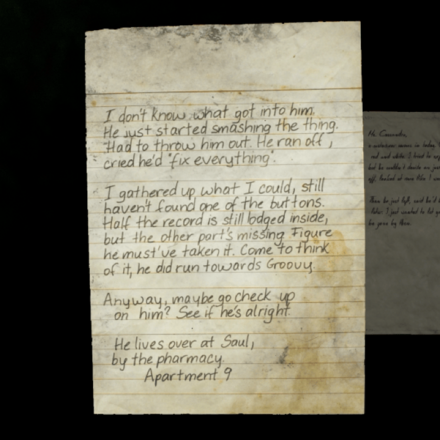 I don't know what got into him.
He just started smashing the thing.
Had to throw him out. He ran off,
cried he'd "fix everything".
I gathered up what I could, still
haven't found one of the buttons.
Half the record is still lodged inside,
but the other part's missing. Figure
he must've taken it. Come to think
of it, he did run towards Groovy
Anyway, maybe go check up
on him? See if he's alright
He lives over at Saul,
by the pharmacy.
Apartment 9